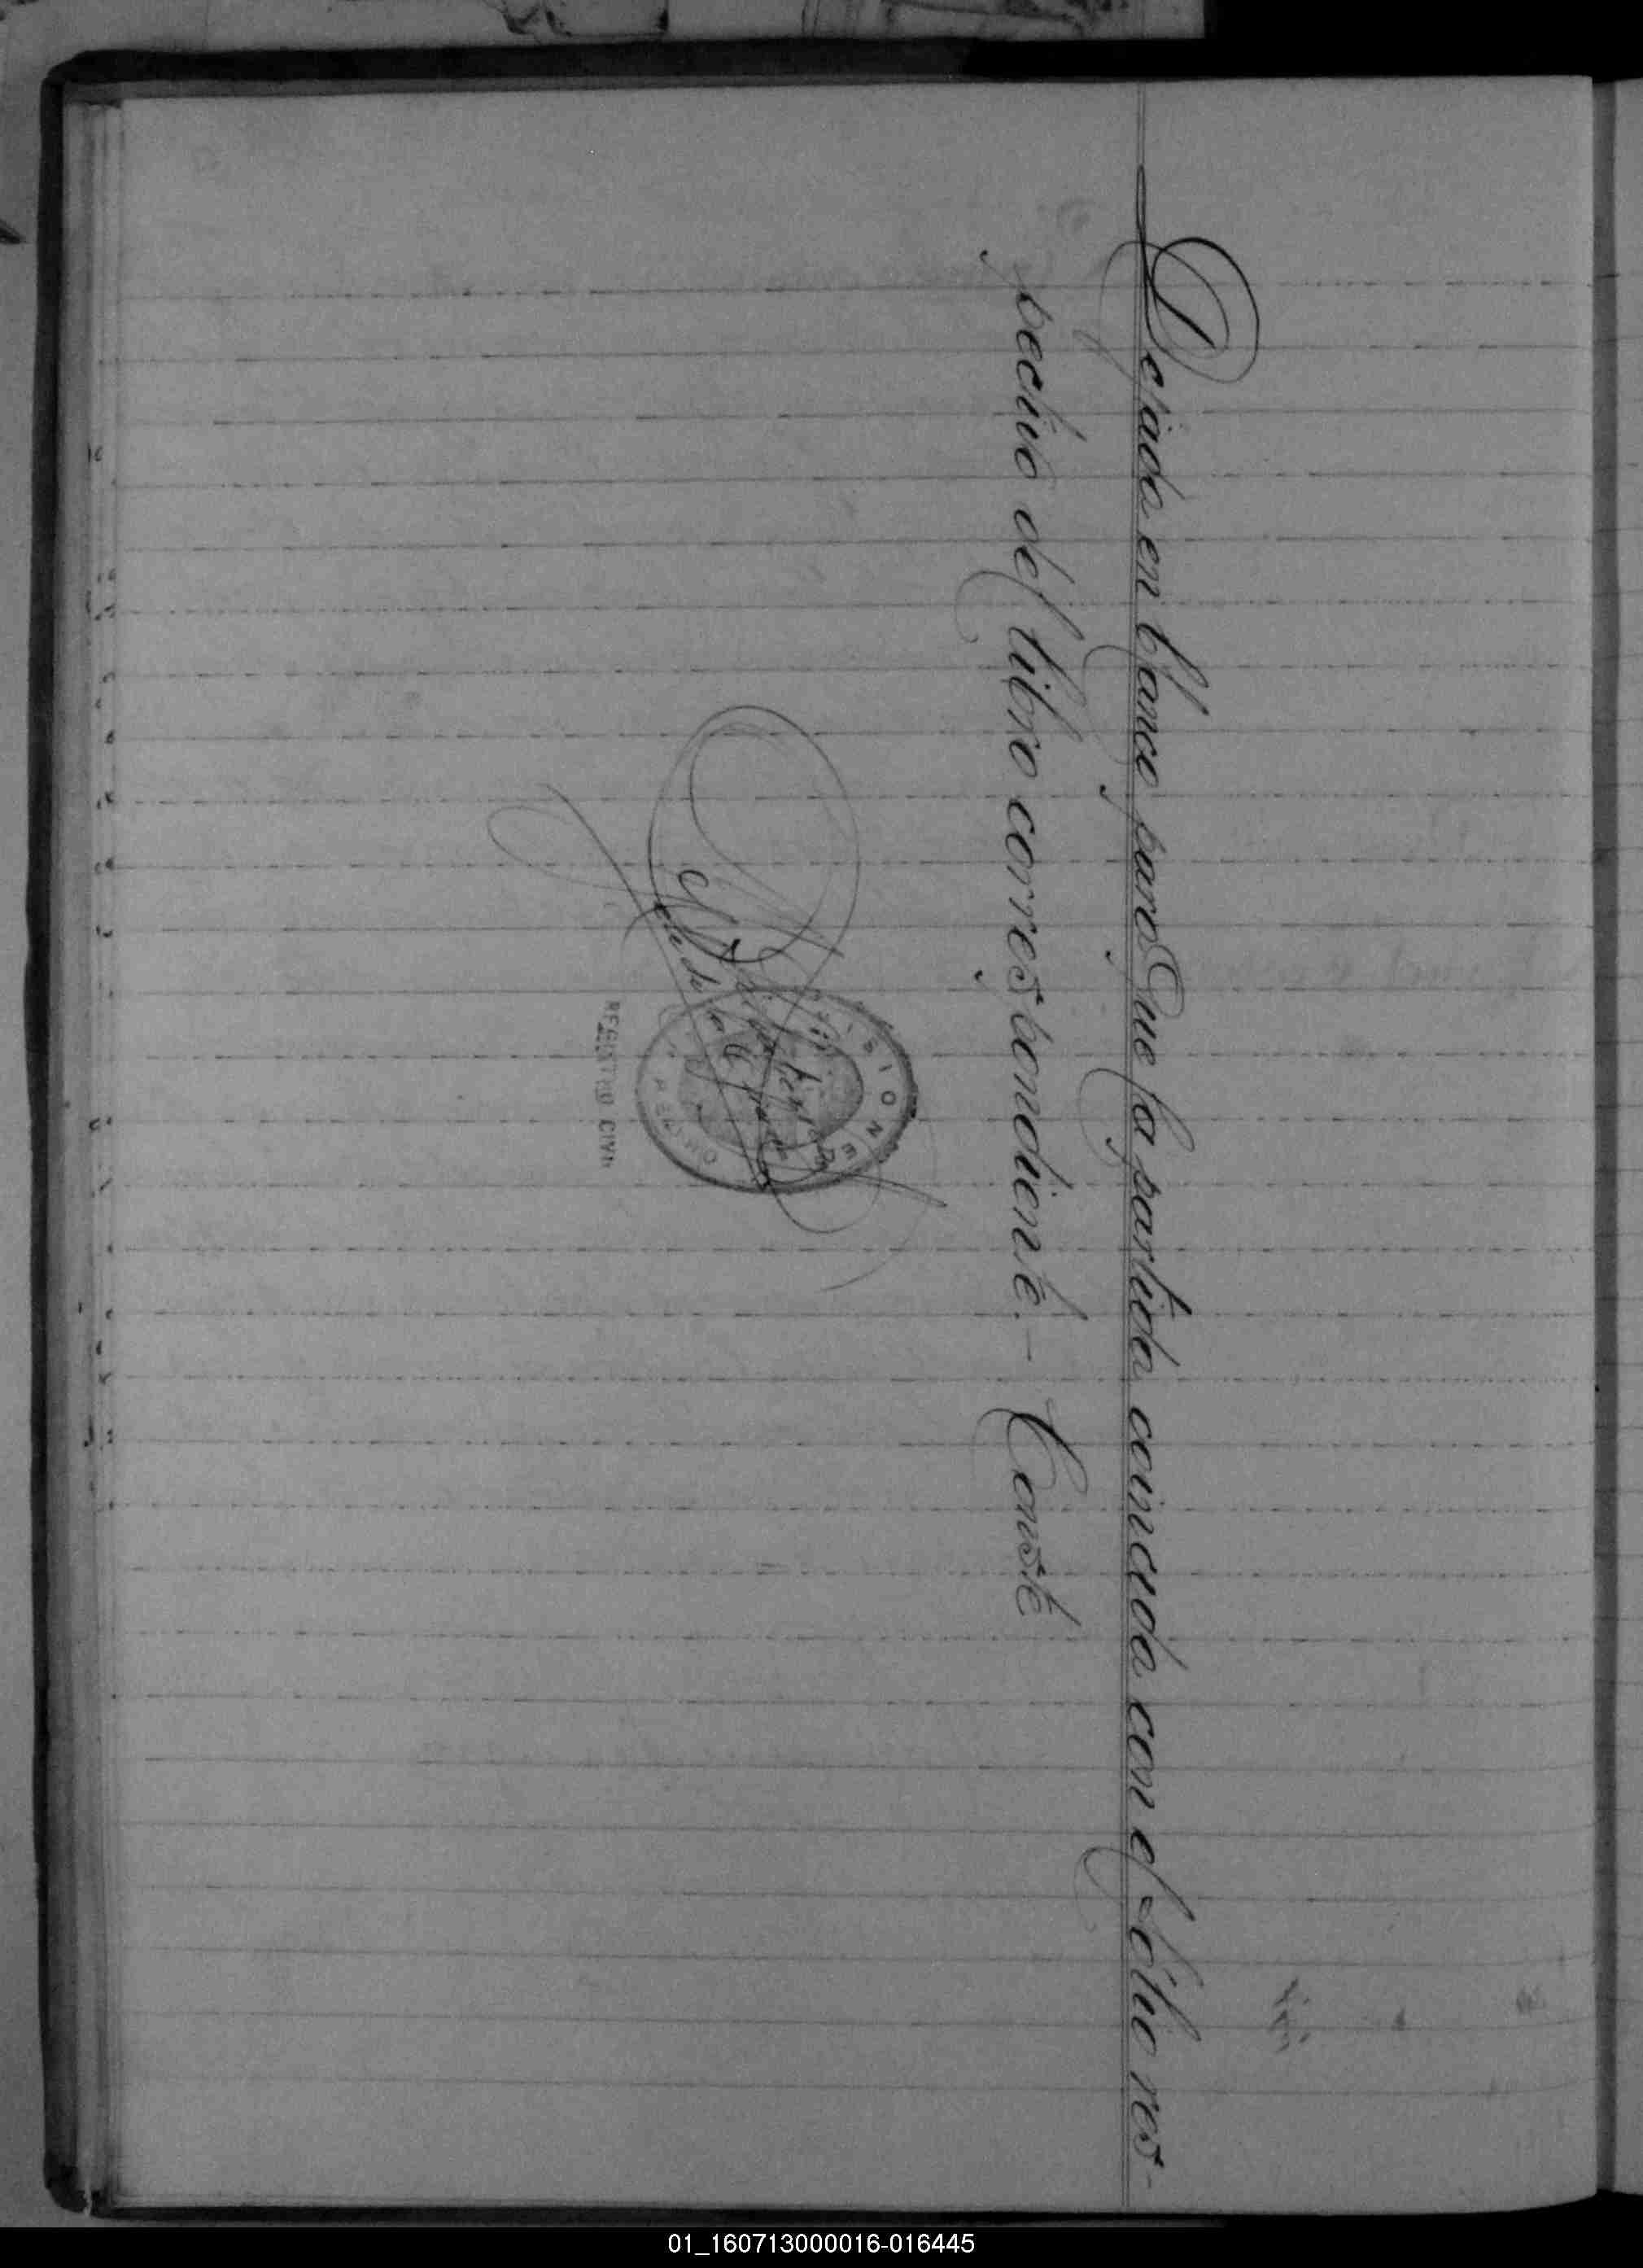 Dejada en blanco para que la partida coincida con el folio res-
pectivo del libro correspondiente. - Conste
REGISTRO CIVIL
01_160713000016-016445